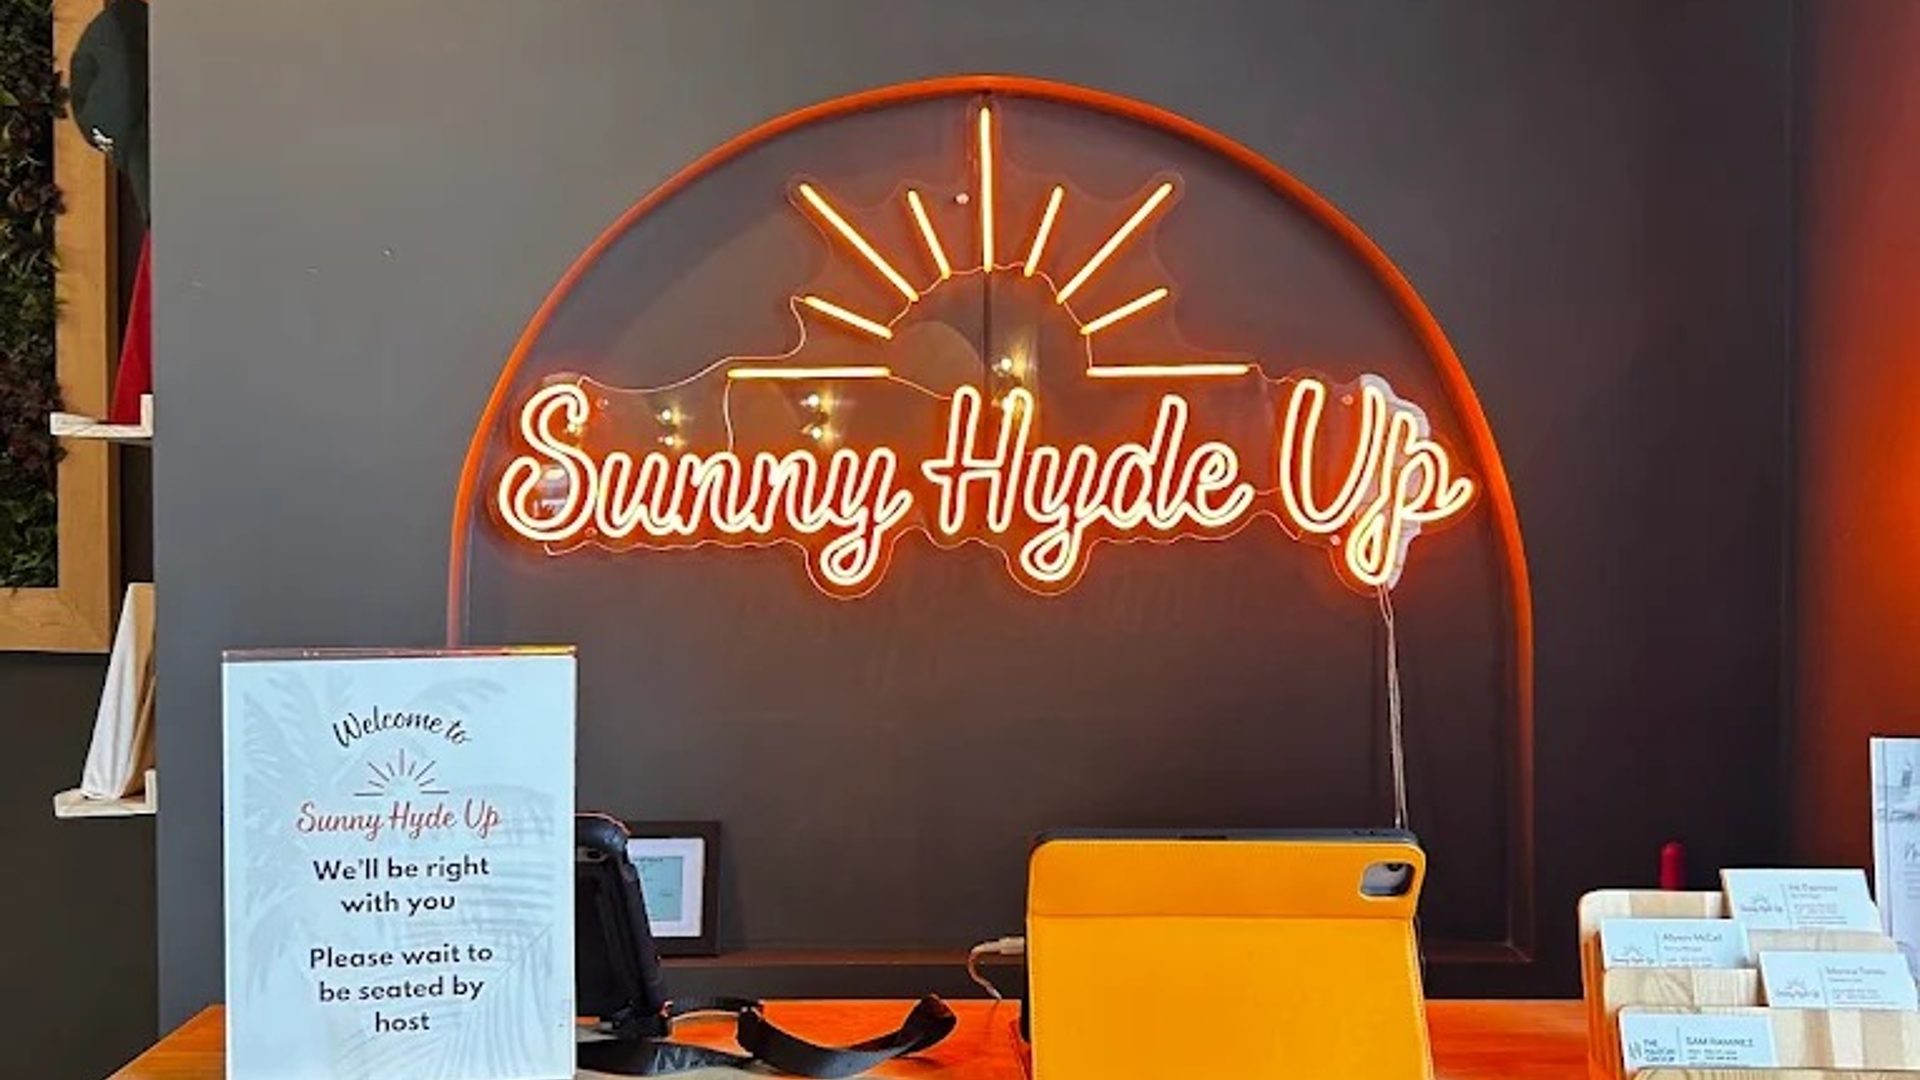 Sunny Hyde Up
Welcome to
Sunny Hyde Up
We'll be right
with you
Please wait to
be seated by
host
Allyson McCall
Sunny Hyde Up
SAM RAMIREZ